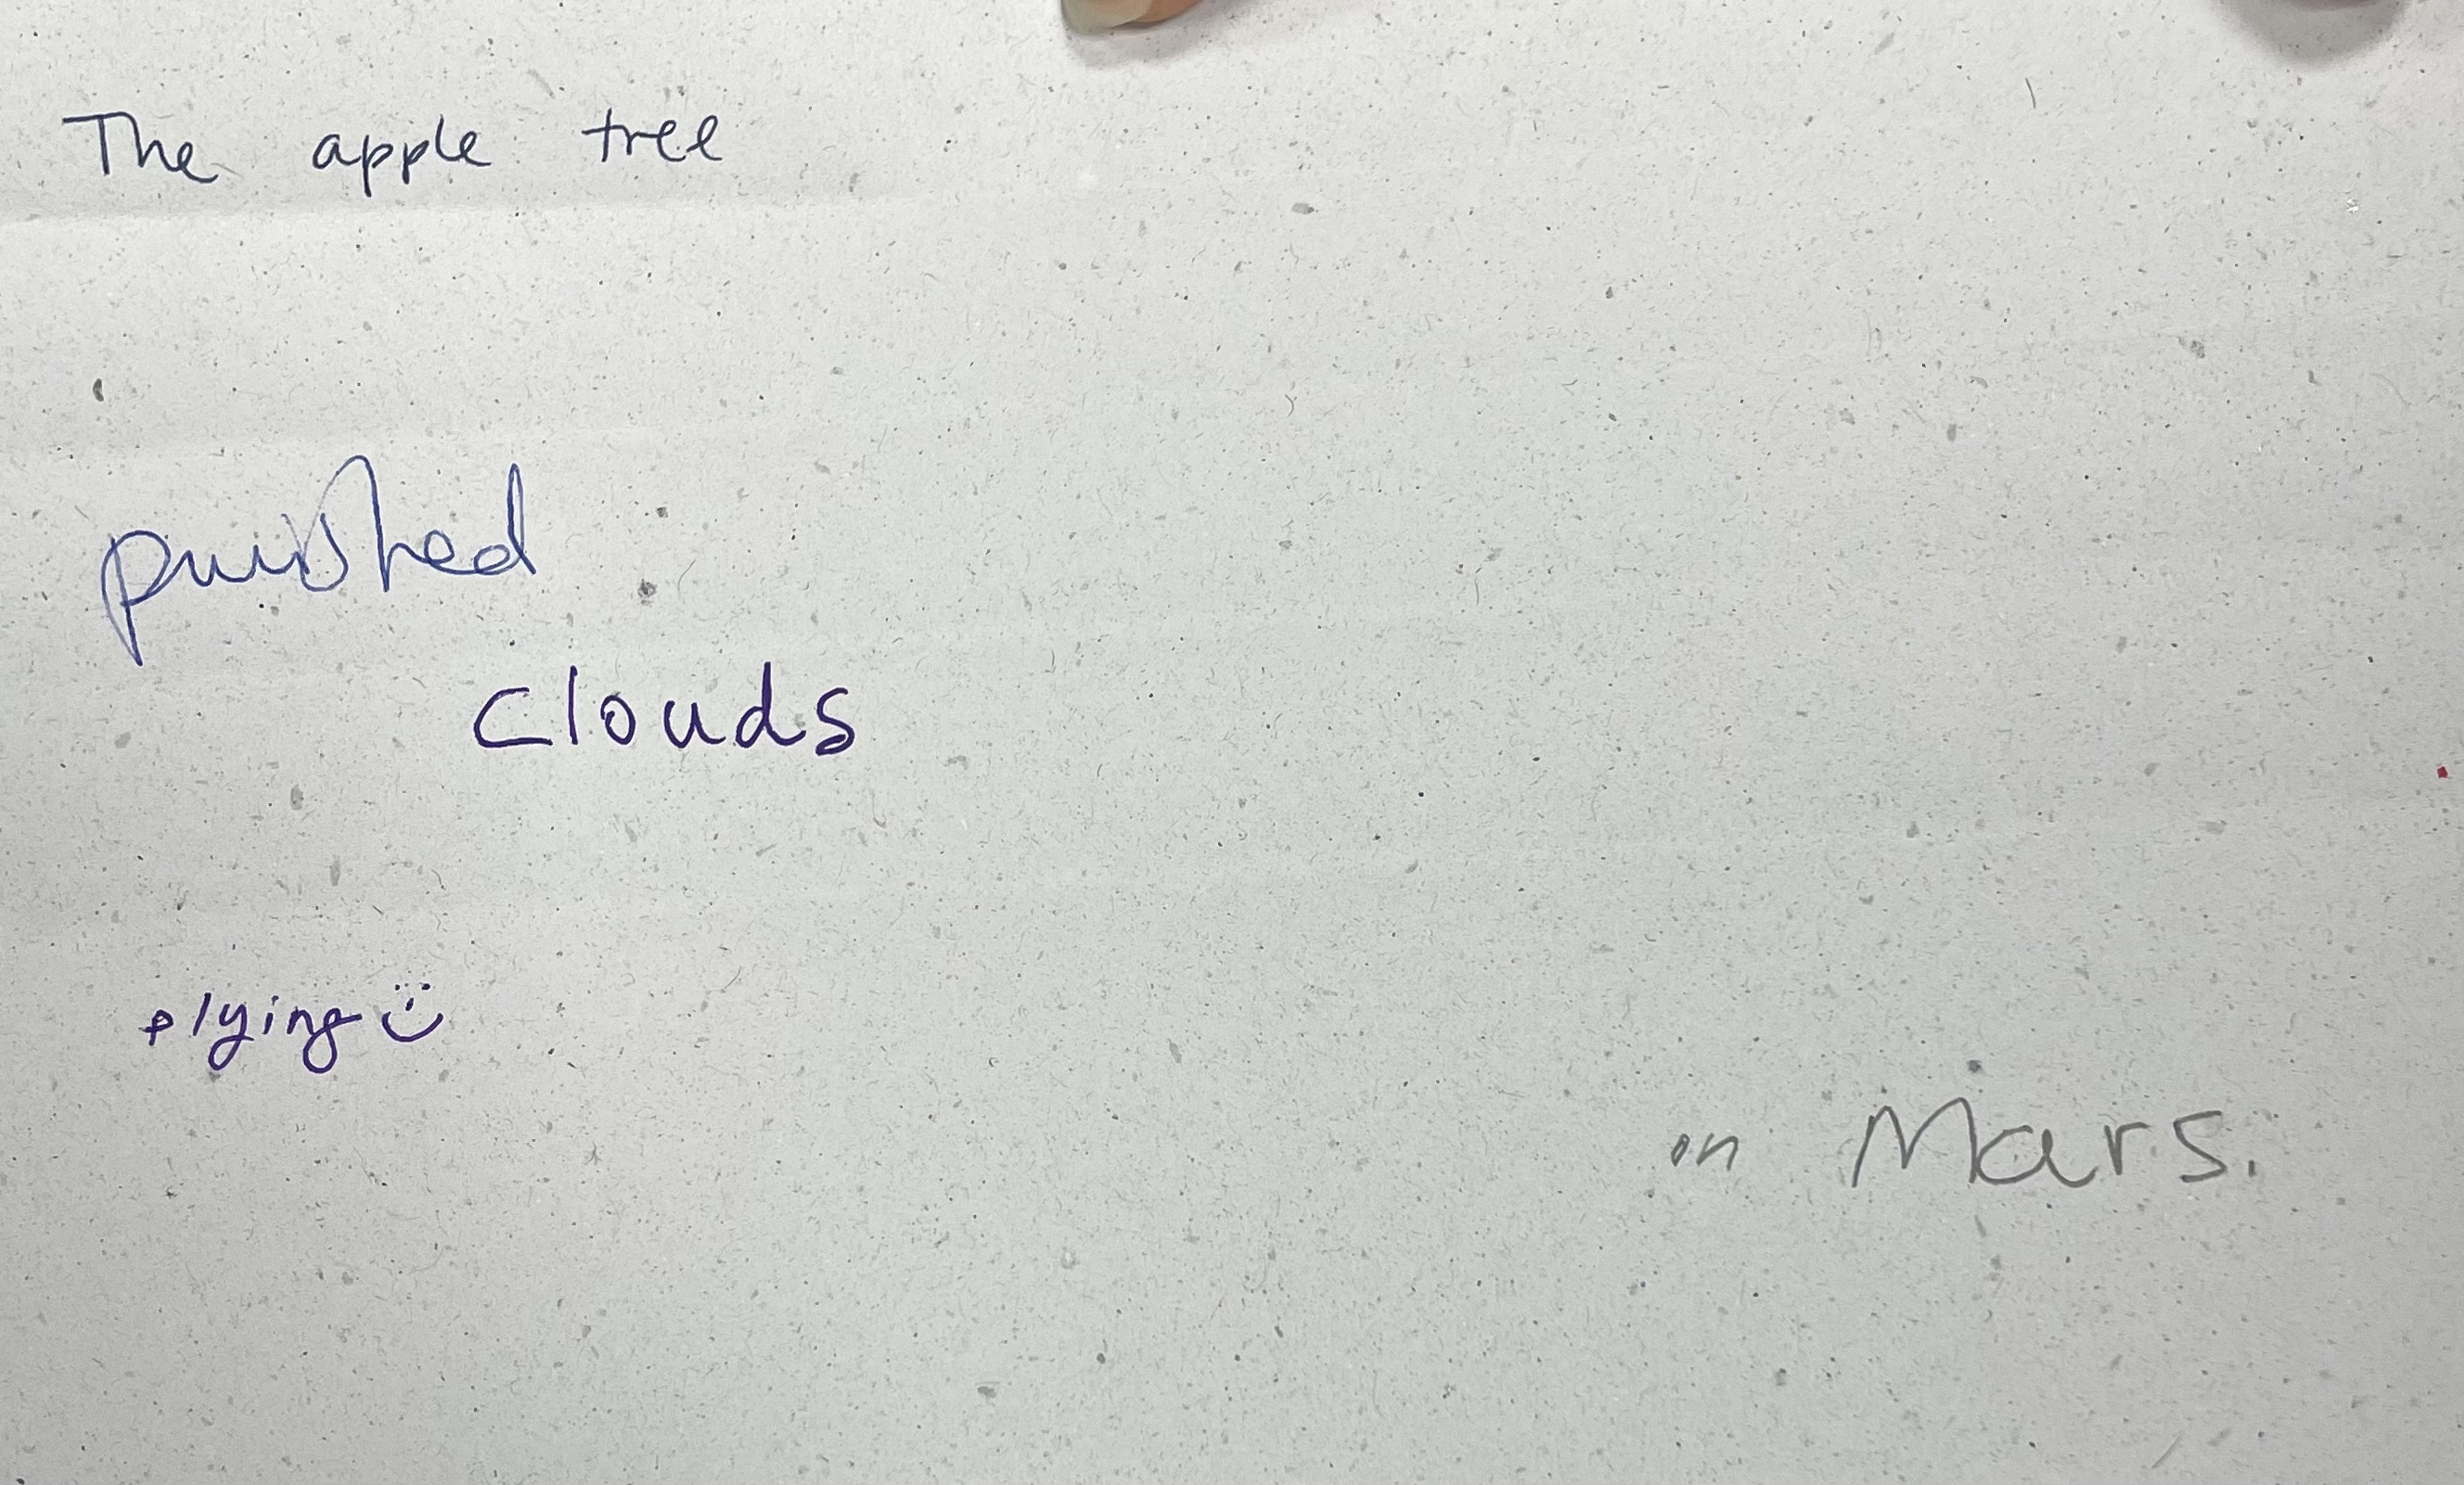 The apple tree
punished
clouds
plying
on Mars.